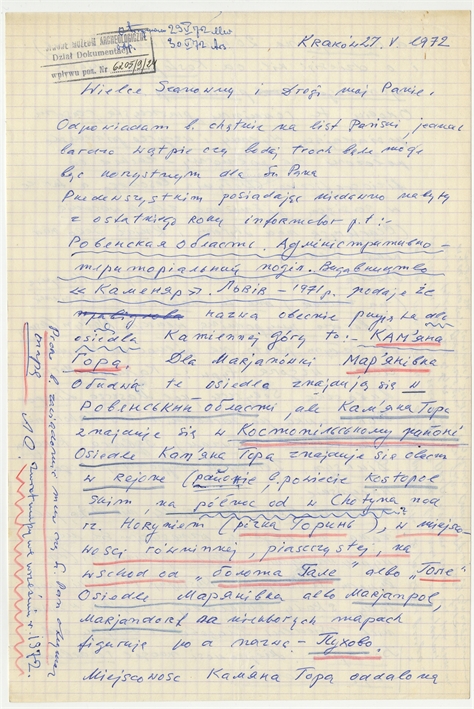 MUZEUM ARCHEOLOGICZNE
Dział Dokumentacji
wpływu poz. Nr 6205/9/21
29 V 72
30 V 72
Kraków 27. V. 1972
Wielce Szanowny i Drogi mój Panie.
Odpowiadam b. chętnie na list Pański, jednak
bardzo wątpię czy będę mógł
być korzystnym dla Pana
Przedewszystkim posiadając niedawno nabyty
z ostatniego roku informator p.t:-
Ровенская Область. Адміністративно-
територіальний поділ. Видавництво
"Каменяр". Львів - 1971 р. podaje że
nazwa obecnie dla
osiedla Kamiennej góry to:- КАМ'ЯНА
Гора. Dla Marjanówki Мар'янівка
Obydwa te osiedla znajdują się w
Ровенський області, ale Кам'яна Гора
znajduje się w Костопільському районі
Osiedle Кам'яна Гора znajduje się obecnie
w rejonie (dawniej b. powiecie kostopol
skim, na północ od w Chotynia nad
rz. Horyniem (річка Горинь), w miejsco-
wości równinnej, piaszczystej, na
wschód od „болота Гале" albo „Голе"
Osiedle Мар'янівка albo Marjanpol,
Marjandorf na niektórych mapach
figuruje pod nazwą - Пухово.
Miejscowość Кам'яна Гора oddaloną
1972.